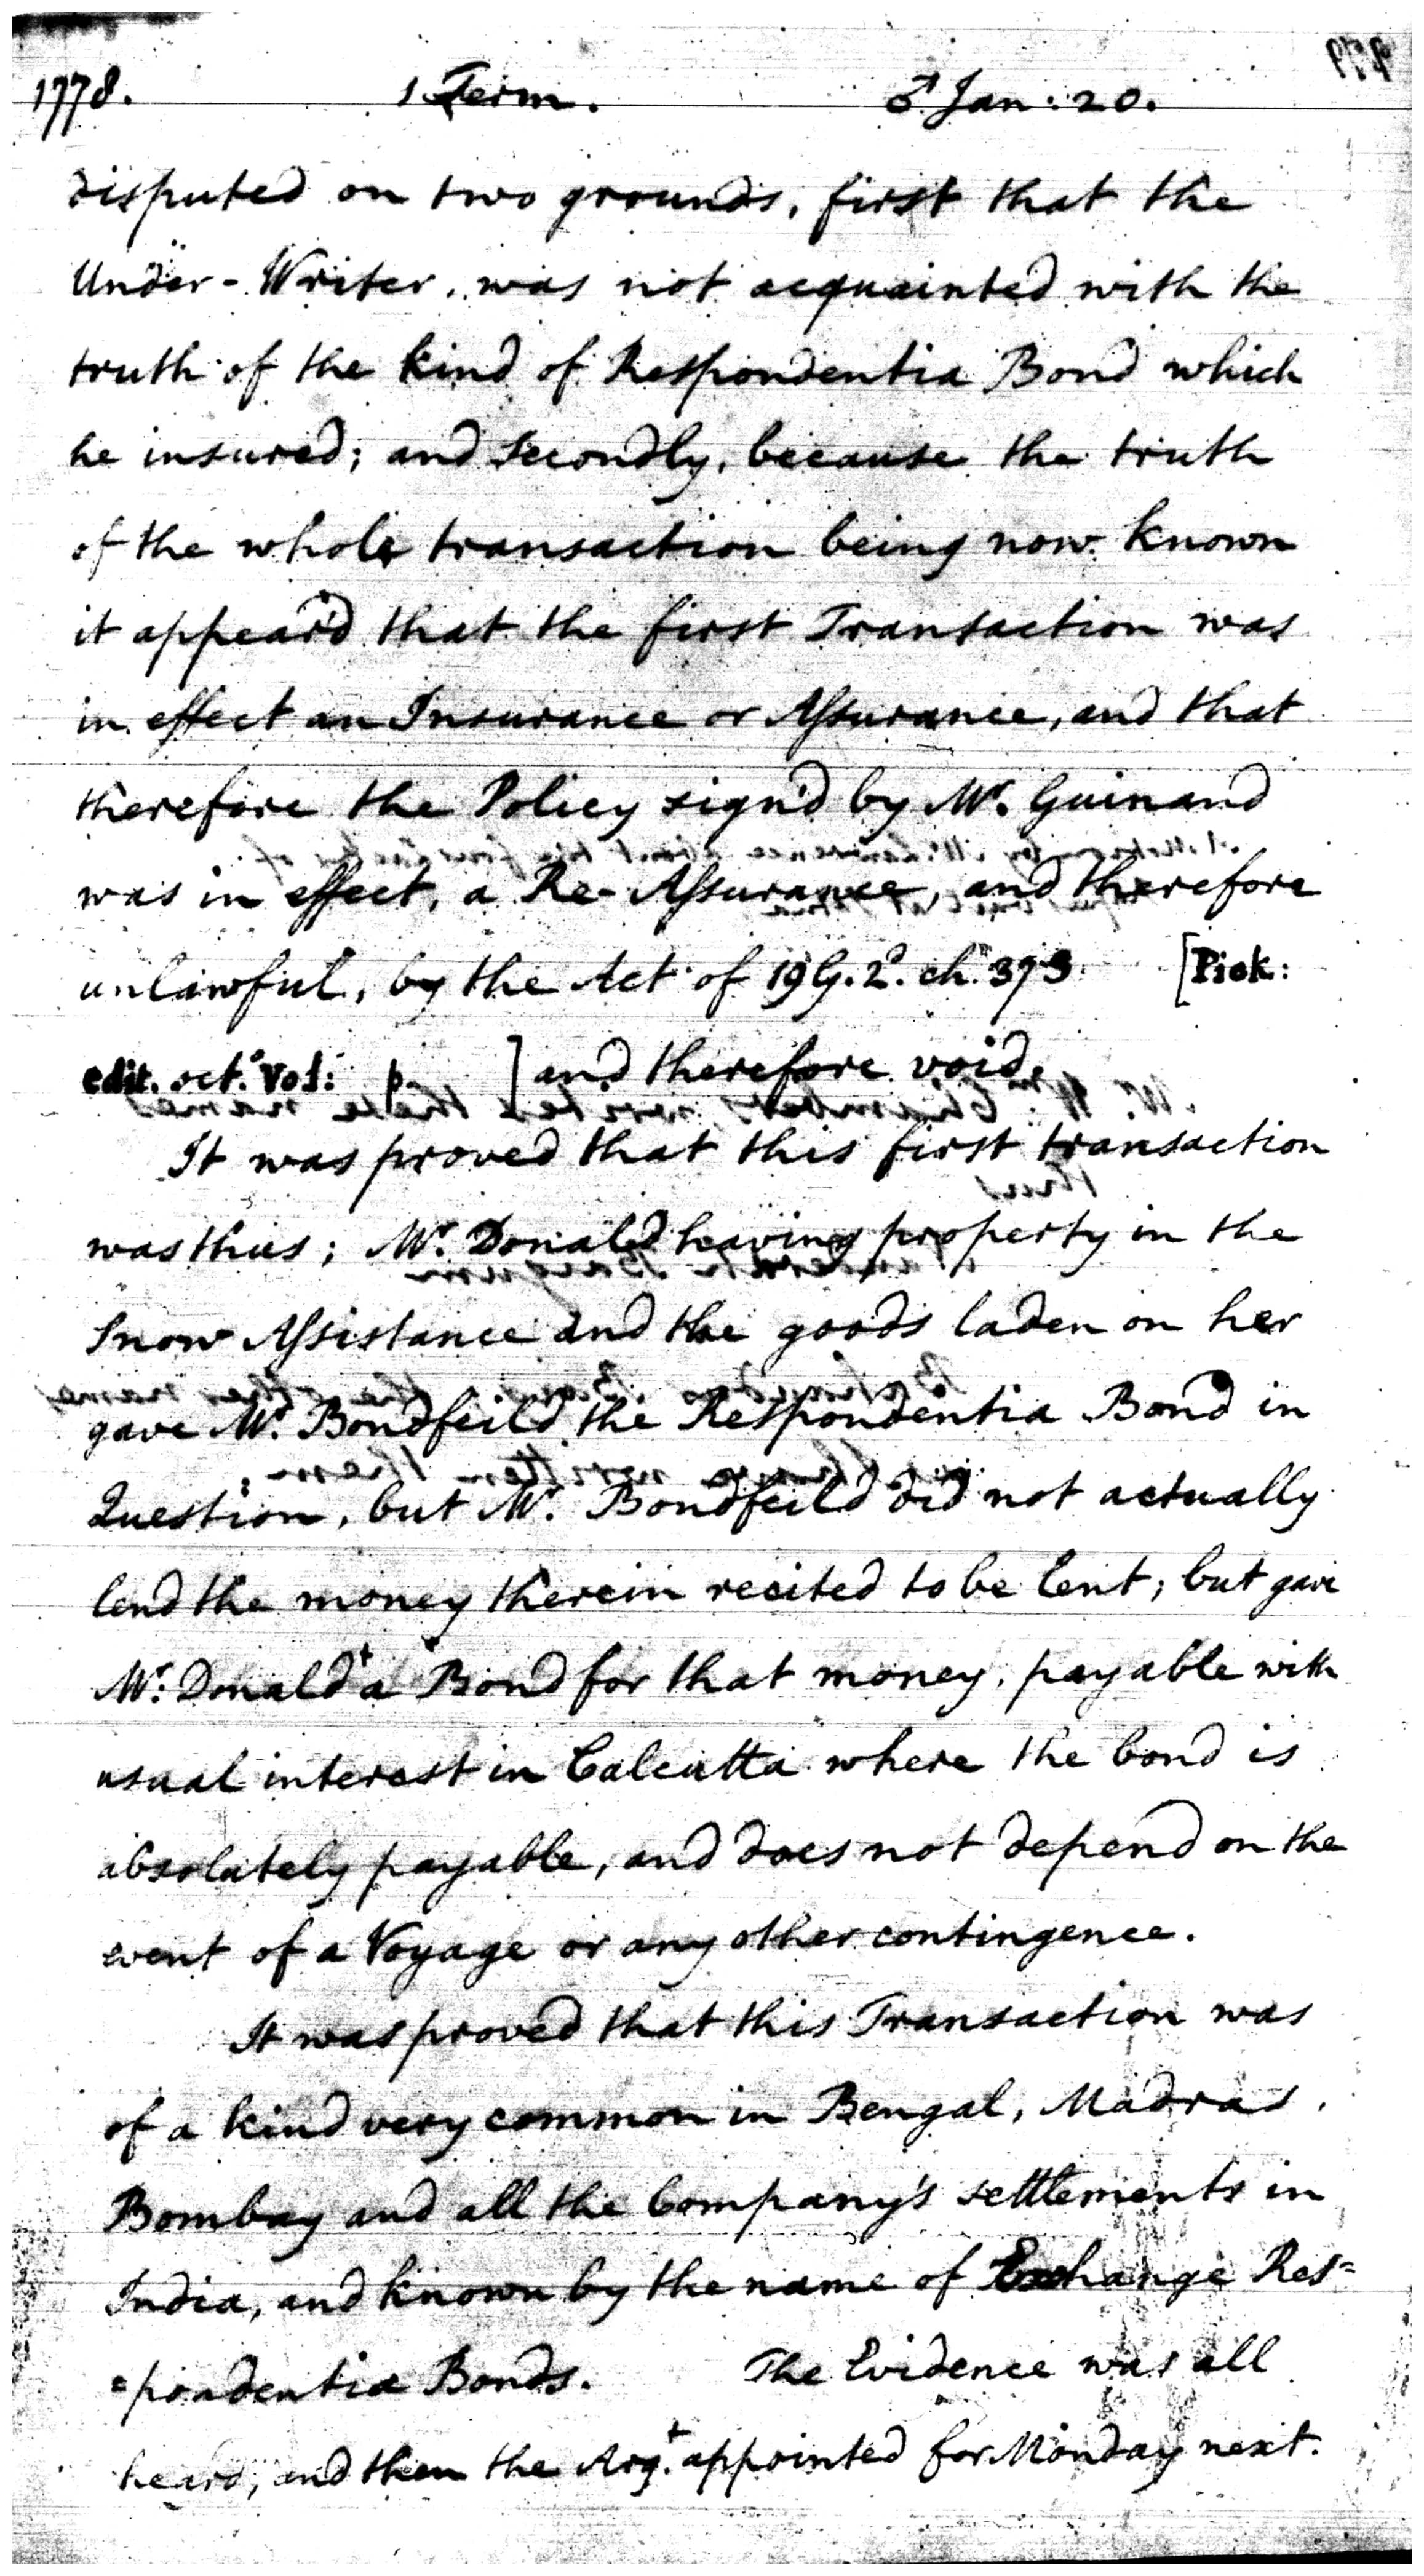 1778. 1 Term. ♂ Jan: 20.
disputed on two grounds, first that the
Under-Writer, was not acquainted with the
truth of the kind of Respondentia Bond which
he insured; and secondly, because the truth
of the whole transaction being now known
it appear'd that the first Transaction was
in effect an Insurance or Assurance, and that
therefore the Policy sign'd by Mr. Guinand
was in effect, a Re-Assurance, and therefore
unlawful, by the Act of 19 G. 2d. ch. 37 S [Pick:
edit. oct.o Vol: p. ] and therefore void.
It was proved that this first transaction
was thus; Mr. Donald having property in the
Snow Assistance and the goods laden on her
gave Mr. Bondfeild the Respondentia Bond in
Question, but Mr. Bondfeild did not actually
lend the money therein recited to be lent; but gave
Mr. Donald a Bond for that money, payable with
usual interest in Calcutta where the bond is
absolutely payable, and does not depend on the
event of a Voyage or any other contingence.
It was proved that this Transaction was
of a kind very common in Bengal, Madras,
Bombay and all the Company's settlements in
India, and known by the name of Exchange Res=
=pondentia Bonds. The Evidence was all
heard, and then the Argt. appointed for Monday next.